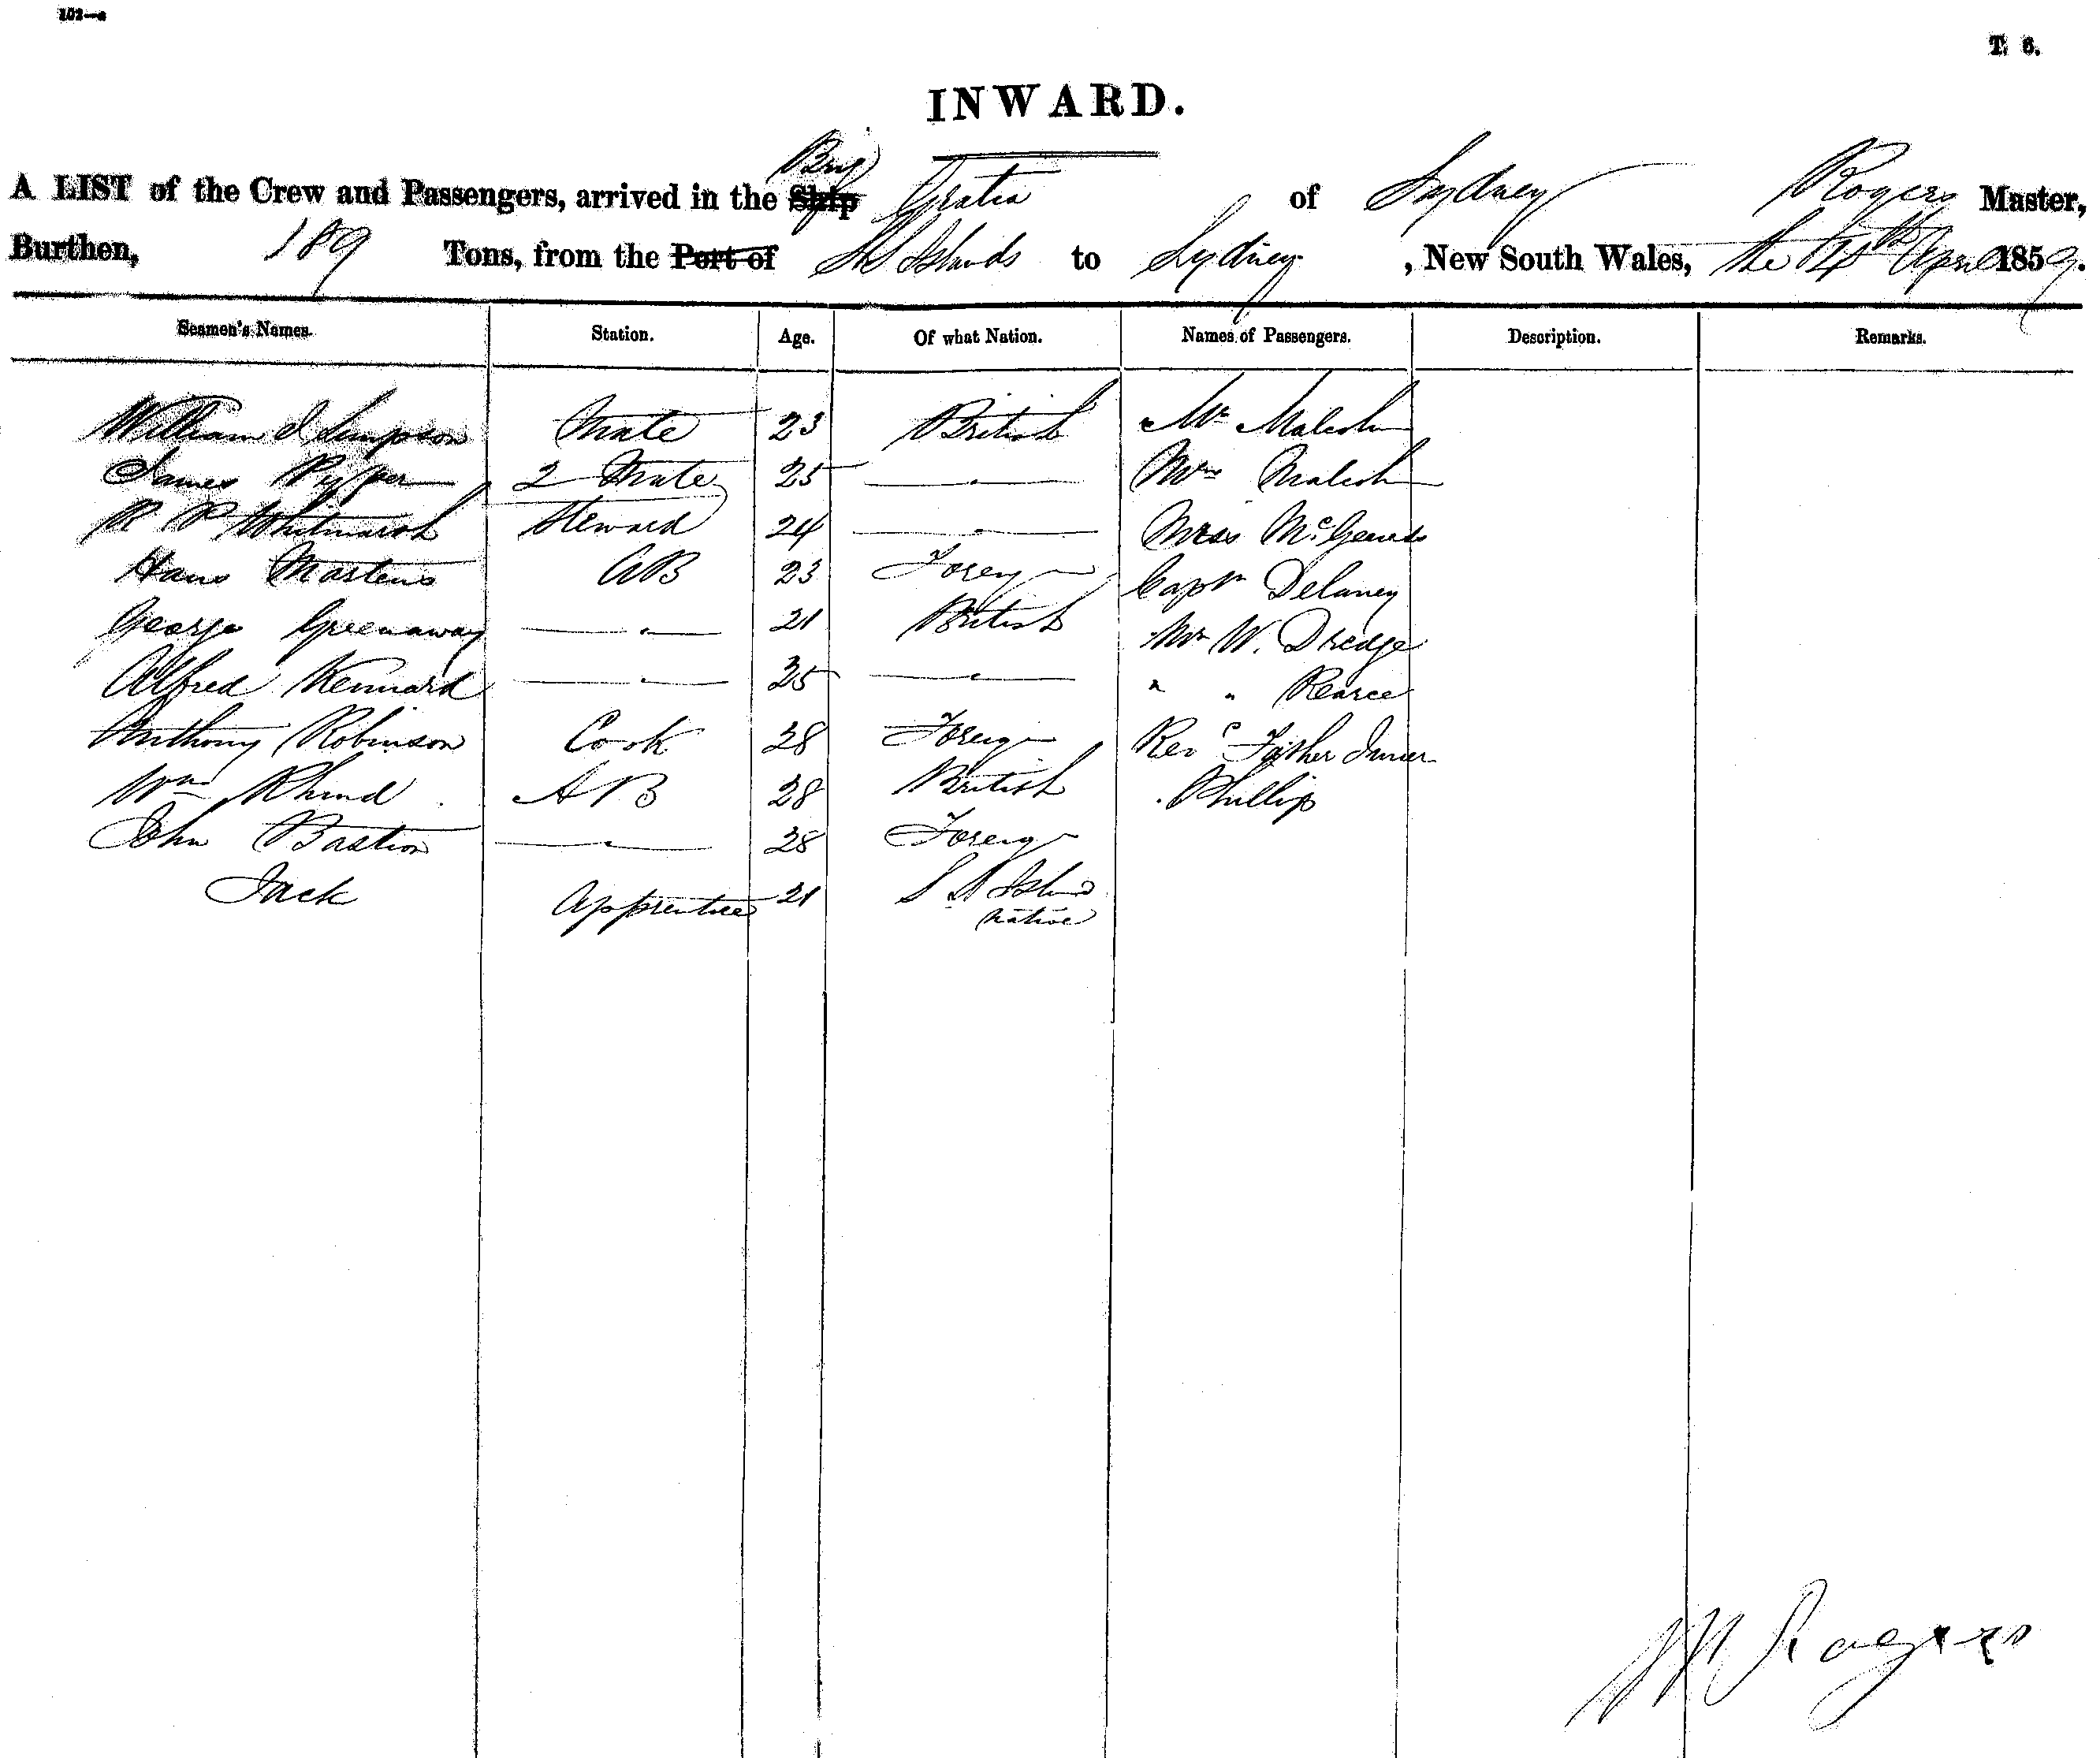 102—a
T. 6.
INWARD.
A LIST of the Crew and Passengers, arrived in the Ship Brig Gratia of Sydney Rogers Master,
Burthen, 189 Tons, from the Port of Islands to Sydney, New South Wales, the 14th April 1859.
Seamen's Names. Station. Age. Of what Nation. Names of Passengers. Description. Remarks.
William J Simpson Mate 23 British Mr Malcolm
James Pyper 2 Mate 25 — " — Mrs Malcolm
R P Whitmarsh Steward 24 — " — Miss
Hans Martens AB 23 Foreign Captn Delaney
George Greenaway — " — 21 British Mr W. Dredge
Alfred Kennard — " — 25 — " — " " Pearce
Anthony Robinson Cook 28 Foreign Revd Father
Wm Rhind AB 28 British Phillip
John Bastion — " — 28 Foreign
Jack Apprentice 21 S S Island
native
Rogers